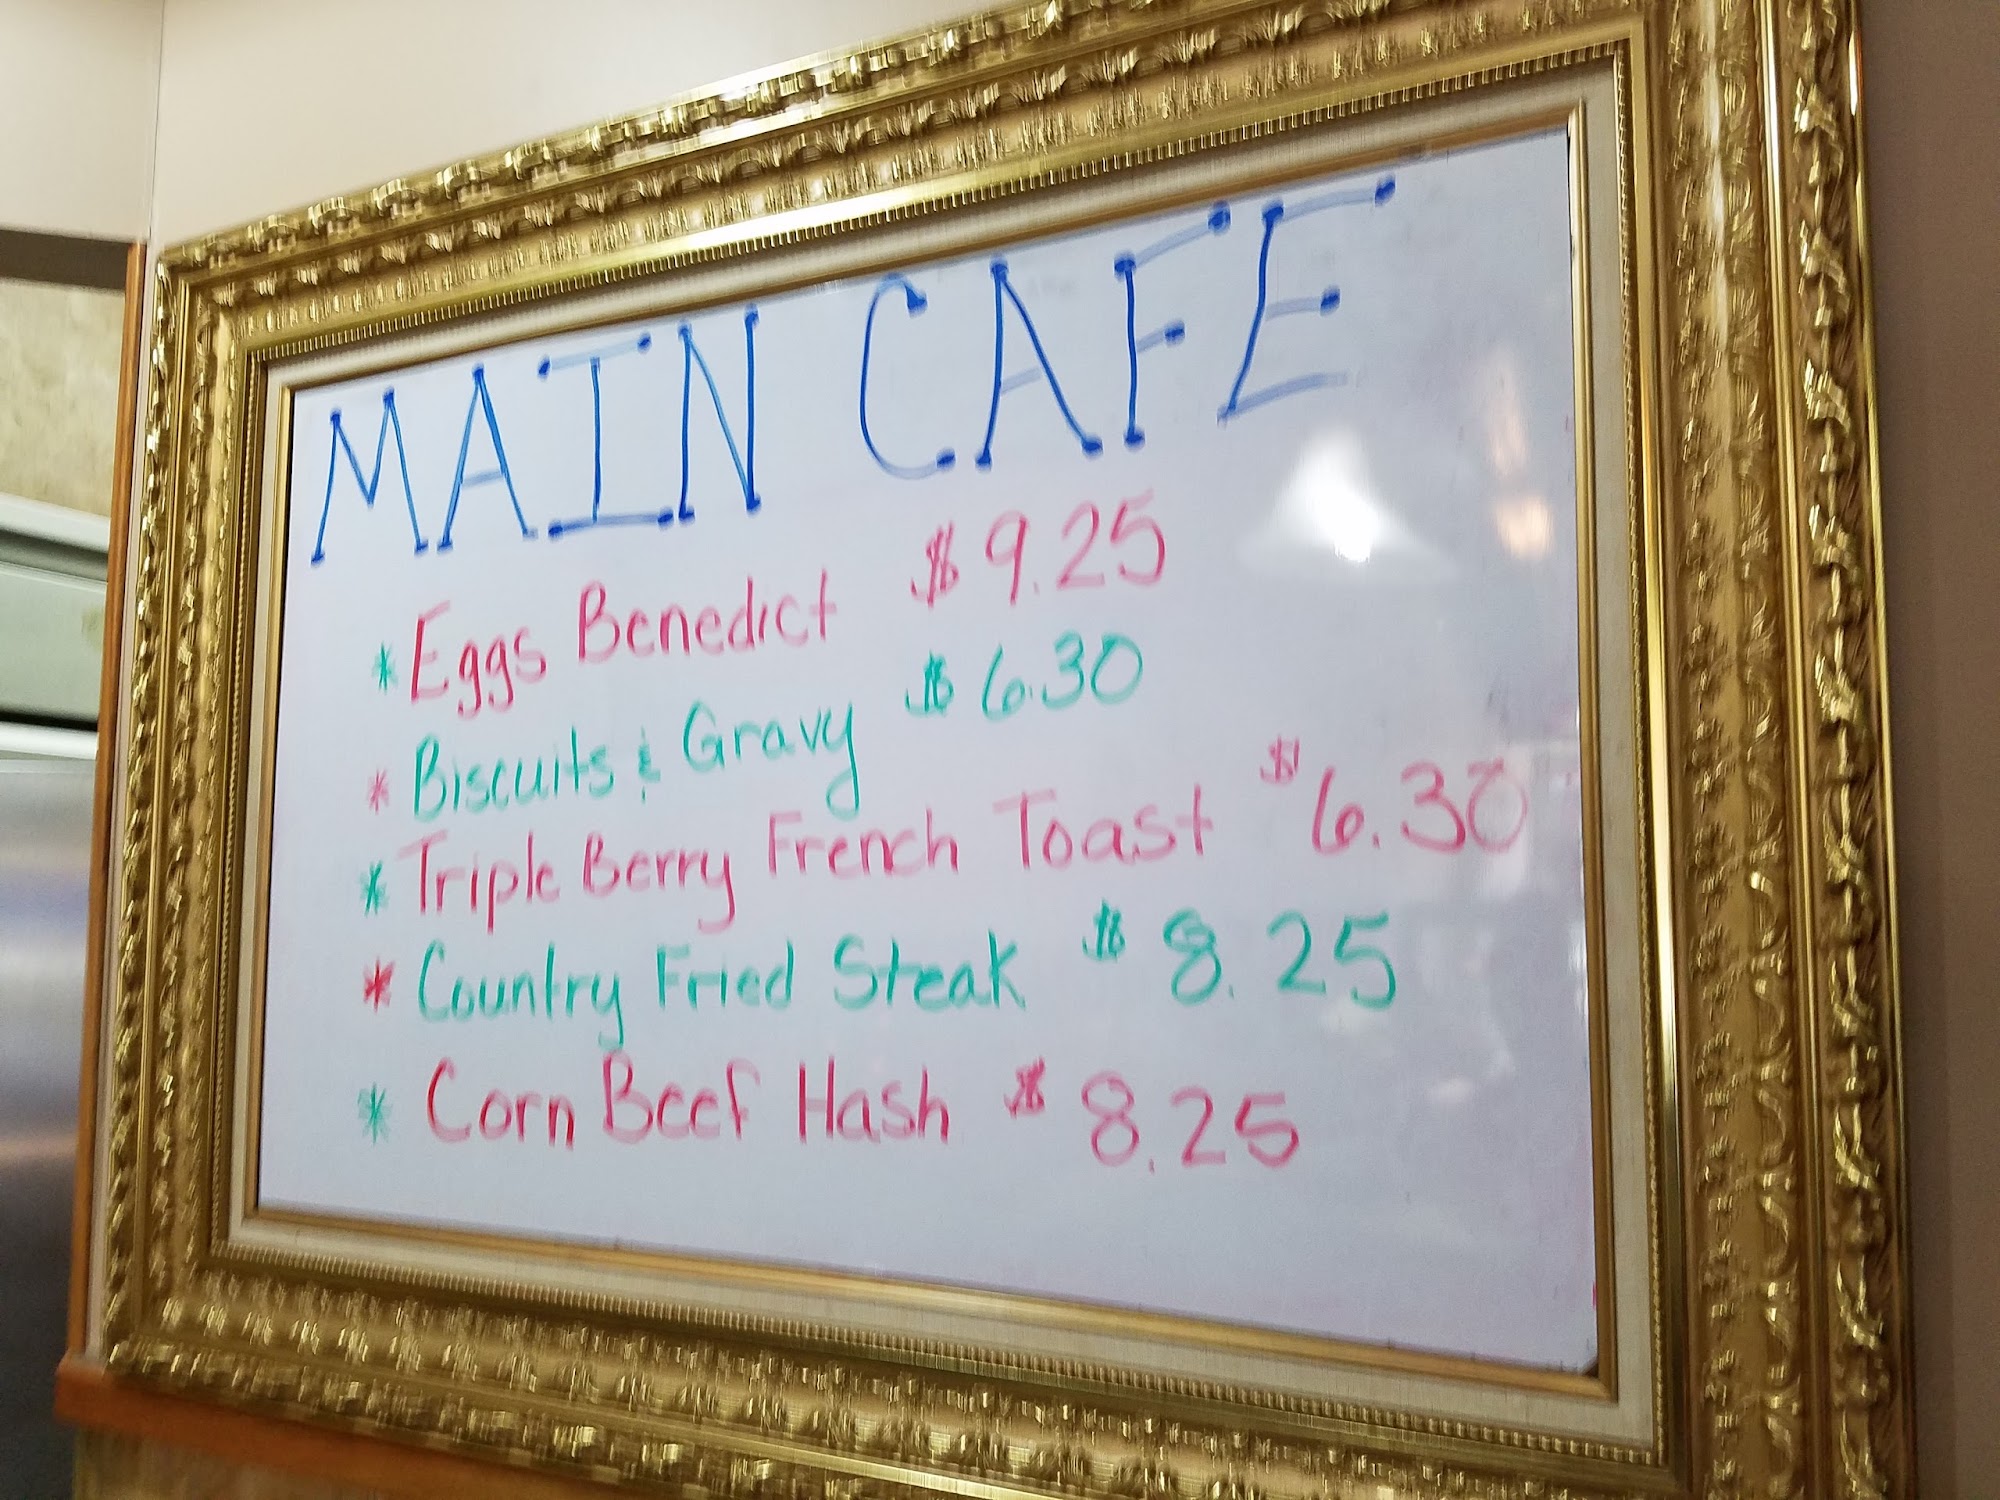 MAIN CAFE
* Eggs Benedict $9.25
* Biscuits & Gravy $6.30
* Triple Berry French Toast $6.30
* Country Fried Steak $8.25
* Corn Beef Hash $8.25